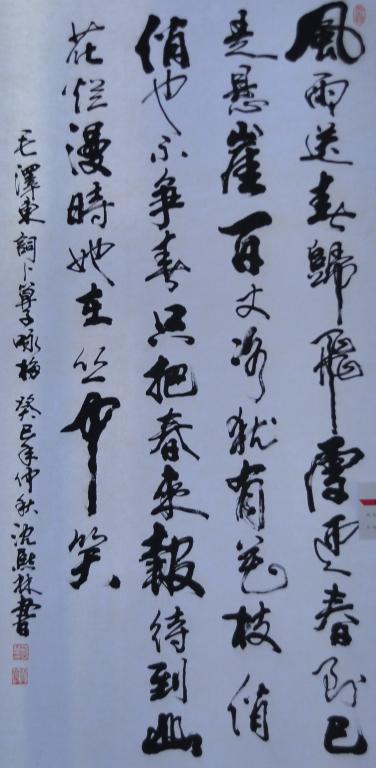 風雨送春歸飛雪迎春到已
是懸崖百丈冰猶有花枝俏
俏也不爭春只把春來報待到山
花烂漫時她在丛中笑
毛澤東詞卜算子咏梅 癸巳年仲秋沈熙林書